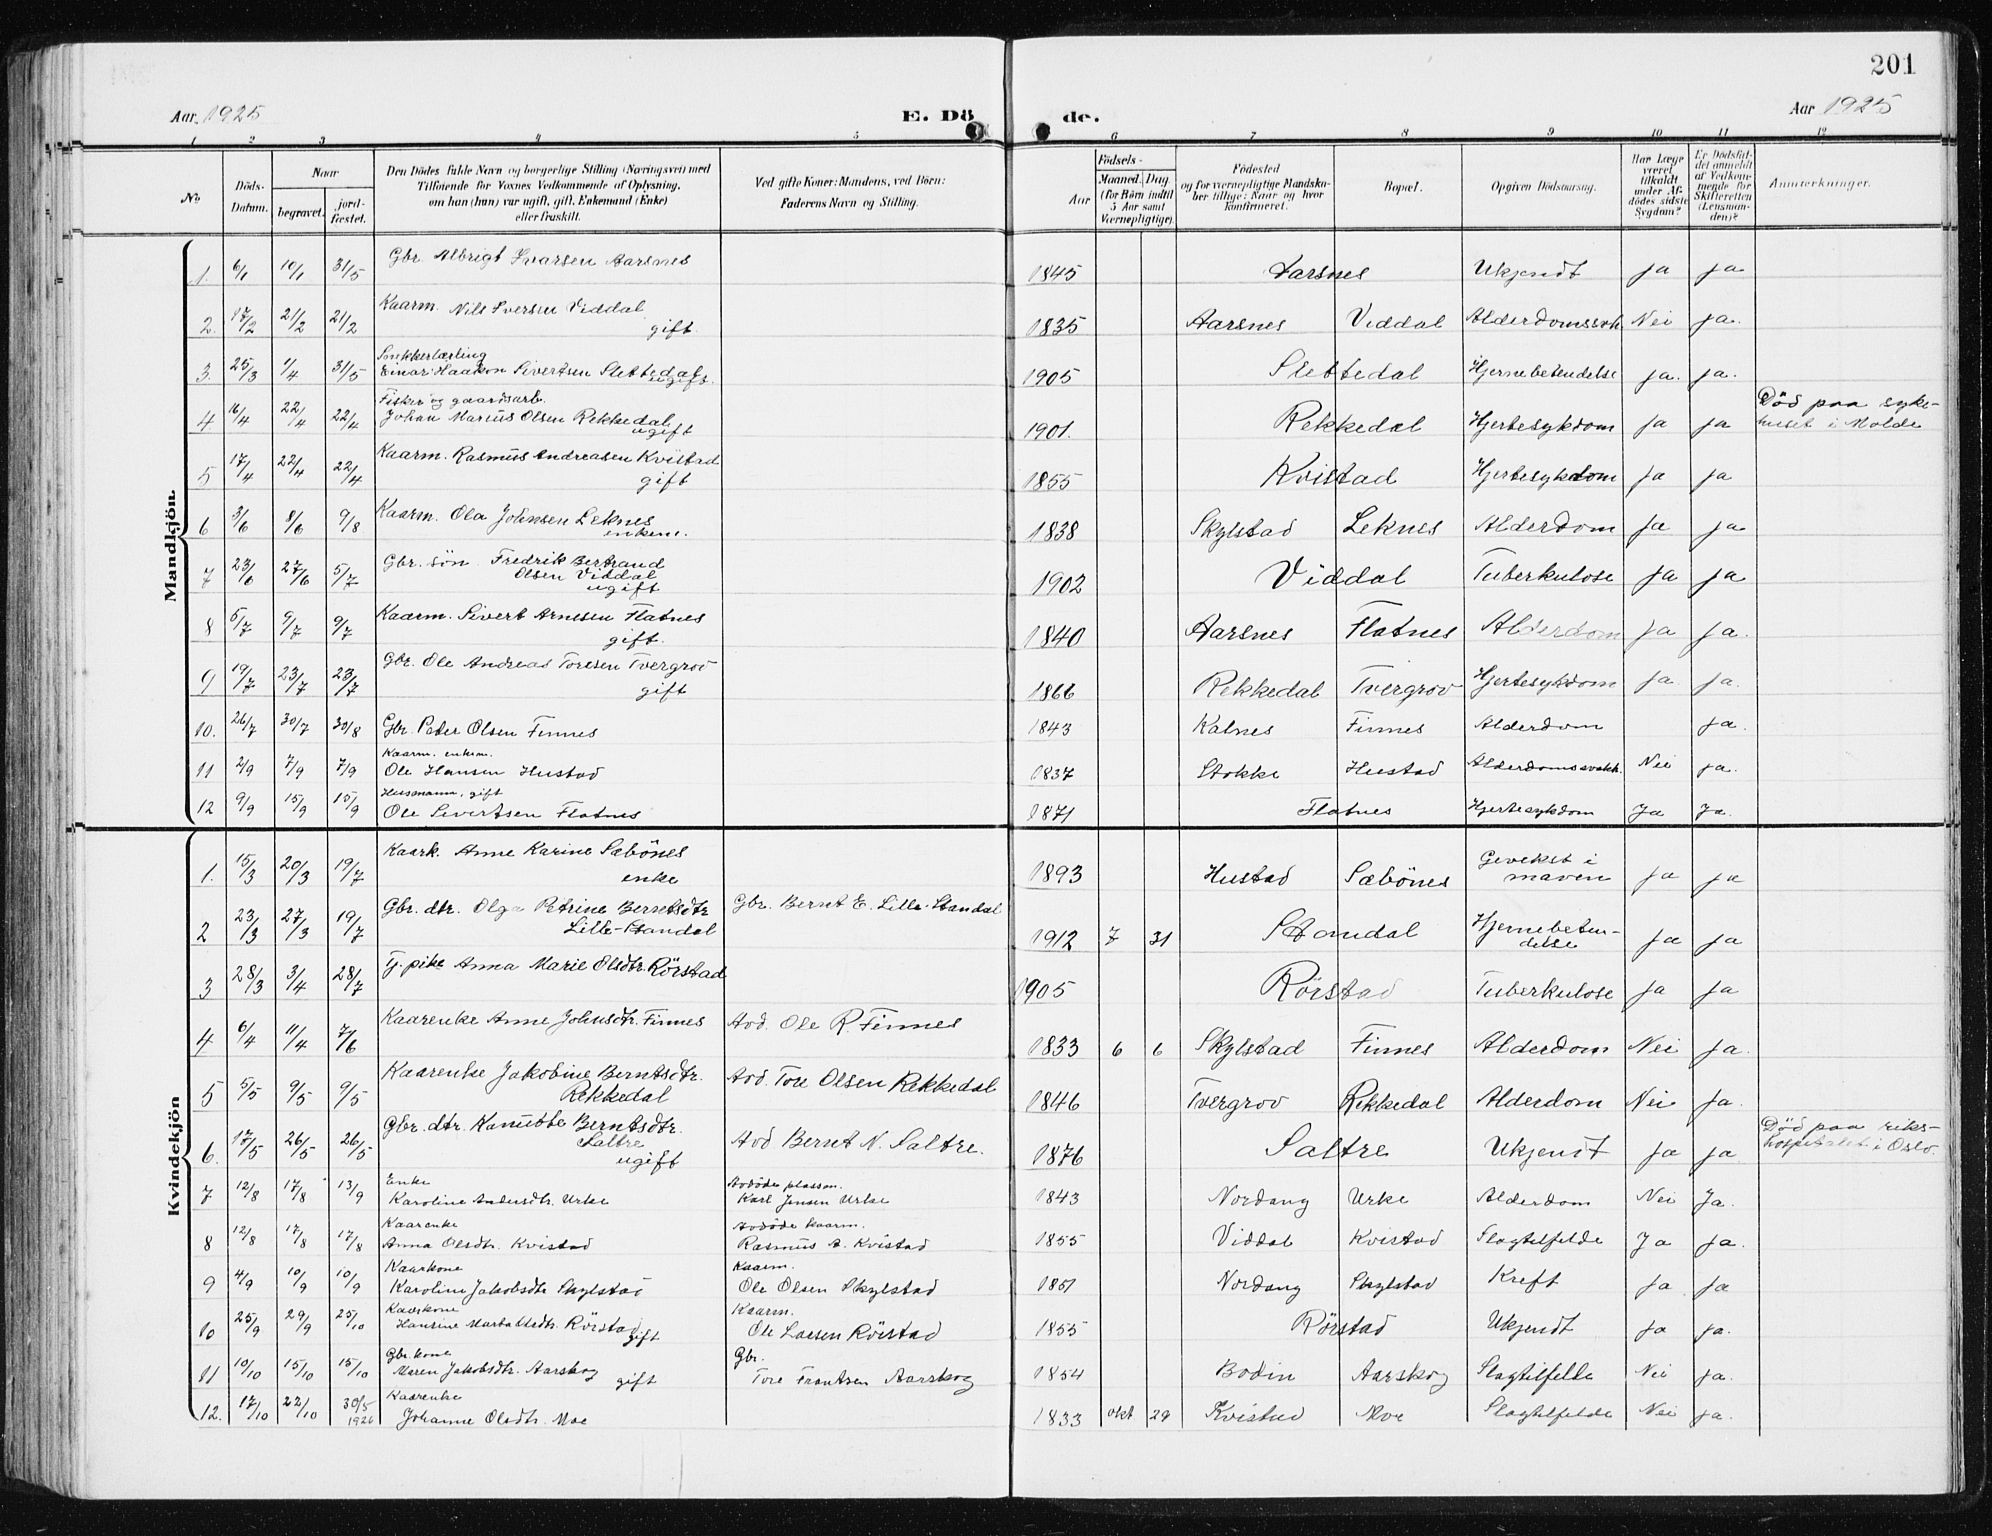 201
Aar 1925 E. Dö de. Aar 1925
1 2 3 4 5 6 7 8 9 10 11 12
No
Döds-Datum.
Naar
begravet.
jord-fæstet.
Den Dödes fulde Navn og borgerlige Stilling (Næringsvei) med
Tilföiende for Voxnes Vedkommende af Oplysning,
om han (hun) var ugift, gift, Enkemand (Enke)
eller fraskilt.
Ved gifte Koner: Mandens, ved Börn:
Faderens Navn og Stilling.
Födsels-
Aar
Maaned. Dag.
(for Börn indtil
5 Aar samt
Værnepligtige).
Födested
og for værnepligtige Mandska-
ber tillige: Naar og hvor
konfirmeret.
Bopæl.
Opgiven Dödsaarsag.
Har Læge
været
tilkaldt
under Af-
dödes sidste
Sygdom?
Er Dödsfal-
det anmeldt
af Vedkom-
mende for
Skifteretten
(Lensman-
den)?
Anmærkninger.
Mandkjön.
1. 6/1 10/1 31/5 Gbr. Albrigt Ivarsen Aarsnes 1845 Aarsnes Ukjendt ja ja
2. 17/2 21/2 21/2 Kaarm. Nils Iversen Viddal gift. 1835 Aarsnes Viddal Alderdomssvk. Nei ja.
3. 25/3 1/4 31/5 Snekkerlærling
Einar Haakon Sivertsen Slettedal ugift. 1905 Slettedal Hjernebetendelse ja. ja.
4 16/4 22/4 22/4 Fisker og gaardsarb.
Johan Marius Olsen Rekkedal ugift 1901. Rekkedal Hjertesykdom ja ja Död paa syke-
huset i Molde
5 17/4 22/4 22/4 Kaarm. Rasmus Andreasen Kvistad
gift 1855 Kvistad Hjertesykdom ja ja
6 3/6 8/6 9/8 Kaarm. Ola Johnsen Leknes
enkem. 1838 Skylstad Leknes Alderdom ja ja
7 23/6 27/6 5/7 Gbr. sön Fredrik Bertrand
Olsen Viddal
ugift 1902 Viddal Tuberkulose ja ja
8 5/7 9/7 9/7 Kaarm. Sivert Arnesen Flatnes
gift. 1840 Aarsnes Flatnes Alderdom ja ja.
9 19/7 23/7 23/7 Gbr. Ole Andreas Toresen Tvergrov
gift 1866 Rekkedal Tvergrov Hjertesykdom ja ja.
10. 26/7 30/7 30/8 Gbr. Peter Olsen Finnes 1843 Kalnes Finnes Alderdom ja.
11 2/9 7/9 7/9 Kaarm. enkem.
Ole Hansen Hustad 1837 Stokke Hustad Alderdomssvakh. Nei ja.
12 9/9 15/9 15/9 Husmann, gift
Ole Sivertsen Flatnes 1871 Flatnes Hjertesykdom Ja Ja.
Kvindekjön
1. 15/3 20/3 19/7 Kaark. Anne Karine Sæbönes
enke 1893 Hustad Sæbönes Gevekst i
maven ja ja
2 23/3 27/3 19/7 Gbr. dtr. Olga Petrine Berntsdtr
Lille-Standal Gbr. Bernt E. Lille-Standal 1912 7 31 Standal Hjernebeten-
delse ja ja
3 28/3 3/4 28/7 Tj. pike Anna Marie Olsdtr. Rörstad 1905 Rörstad Tuberkulose ja ja
4 6/4 11/4 7/6 Kaarenke Anne Johnsdtr. Finnes Avd. Ole R. Finnes 1833 6 6 Skylstad Finnes Alderdom Nei ja.
5 5/5 9/5 9/5 Kaarenke Jakobine Berntsdtr.
Rekkedal Avd. Tore Olsen Rekkedal 1846 Tvergrov Rekkedal Alderdom Nei ja.
6. 17/5 26/5 26/5 Gbr. dtr. Kanutte Berntsdtr.
Saltre
ugift Avd Bernt N. Saltre. 1876 Saltre Ukjendt ja ja Död paa riks-
hospitalet i Oslo.
7 12/8 17/8 13/9 Enke
Karoline Andersdtr. Urke Avdöde plassm.
Karl Jensen Urke 1843 Nordang Urke Alderdom Nei Ja.
8 12/8 17/8 17/8 Kaarenke
Anna Olsdtr. Kvistad Avdöde kaarm.
Rasmus A. Kvistad 1855 Viddal Kvistad Slagtilfelde Ja ja.
9 4/9 10/9 10/9 Kaarkone
Karoline Jakobsdtr Skylstad Kaarm.
Ole Olsen Skylstad 1851 Nordang Skylstad Kreft ja ja
10 25/9 29/9 25/10 Kaarkone
Rörstad gift Kaarm.
Ole Larsen Rörstad 1855 Rörstad Ukjendt ja ja.
11 10/10 15/10 15/10 Gbr. kone
Maren Jakobsdtr. Aarskog gift Gbr.
Tore Frantsen Aarskog 1854 Bodin Aarskog Slagtilfelde Nei ja.
12. 17/10 22/10 30/5 1926 Kaarenke
Johanne Olsdtr. Moe 1833 okt 29 Kvistad Moe Slagtilfelde Nei ja.